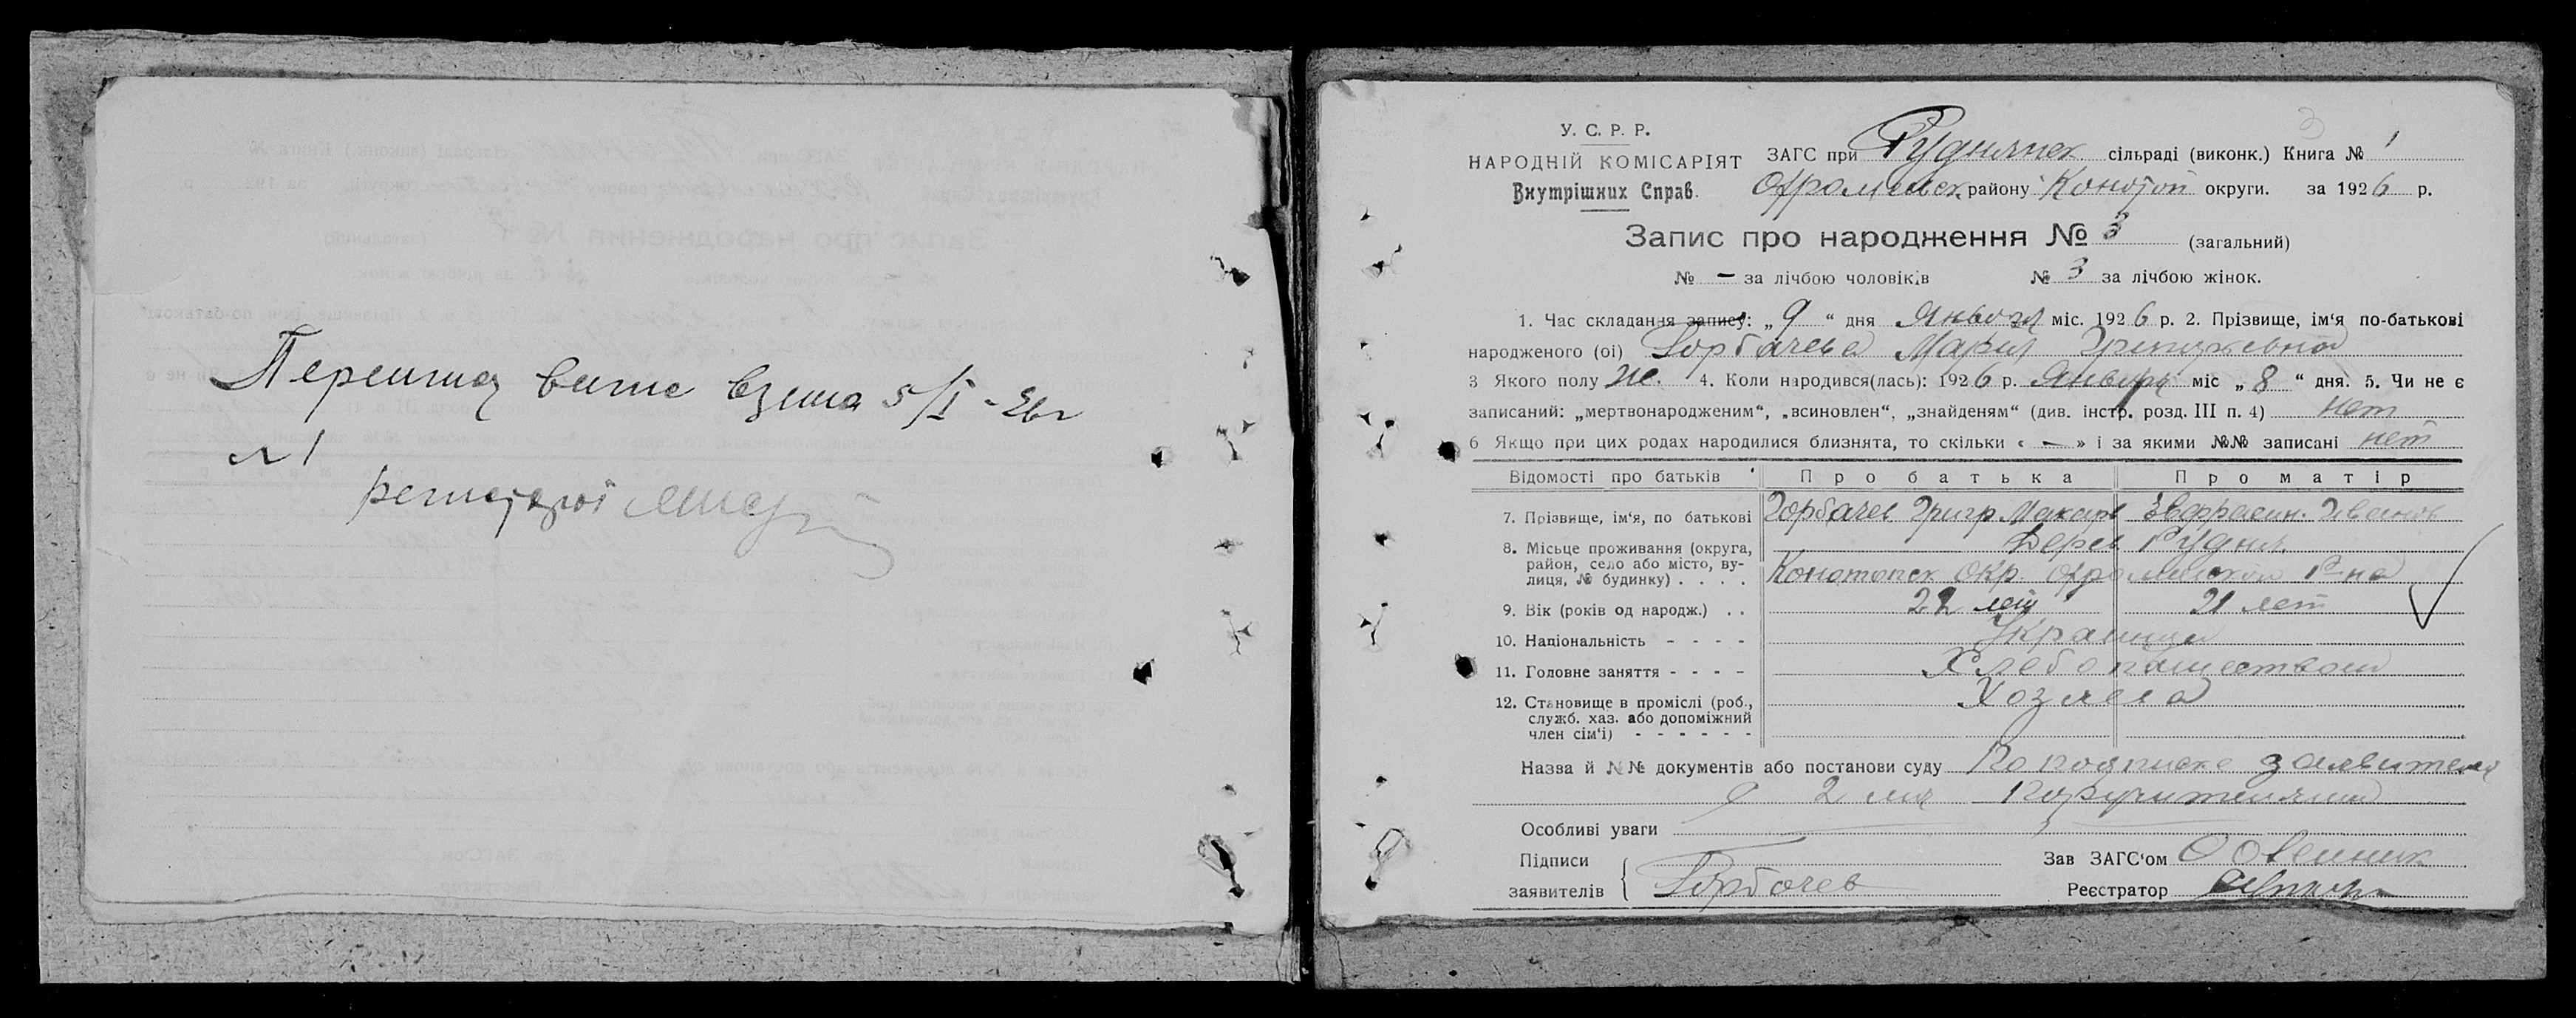 взята 5/I - 26 г
№ 1
У. С. Р. Р.
НАРОДНІЙ КОМІСАРІЯТ
Внутрішних Справ.
ЗАГС при Руднянск сільраді (виконк.) Книга № 1
району Конотоп округи. за 1926 р.
Запис про народження № 3 (загальний)
№ — за лічбою чоловіків № 3 за лічбою жінок.
1. Час складання запису: „ 9 “ дня Января міс. 1926 р. 2. Прізвище, ім'я по-батькові
народженого (ої) Горбачева Мария Григорьевна
3 Якого полу ж. 4. Коли народився(лась): 1926 р. Января міс „ 8 “ дня. 5. Чи не є
записаний: „мертвонародженим“, „всиновлен“, „знайденям“ (див. інстр. розд. III п. 4) нет
6 Якщо при цих родах народилися близнята, то скільки « — » і за якими №№ записані нет
Відомості про батьків Про батька Про матір
7. Прізвище, ім'я, по батькові Горбачев Григр Макаров Иванов
8. Місьце проживання (округа, район, село або місто, ву-лиця, № будинку) . . . . Дерев Рудня.
Конотопск окр. Р-на
9. Вік (років од народж.) . . 22 лет 21 лет
10. Національність - - - - Украинцы
11. Головне заняття - - - - Хлебопашеством
12. Становище в промислі (роб., служб. хаз. або допоміжний член сім'ї) - - - - - - Хозяева
Назва й №№ документів або постанови суду По подписке заявителя
с 2 мя поручителями
Особливі уваги
Підписи
заявителів { Горбачев
Зав ЗАГС'ом
Реєстратор